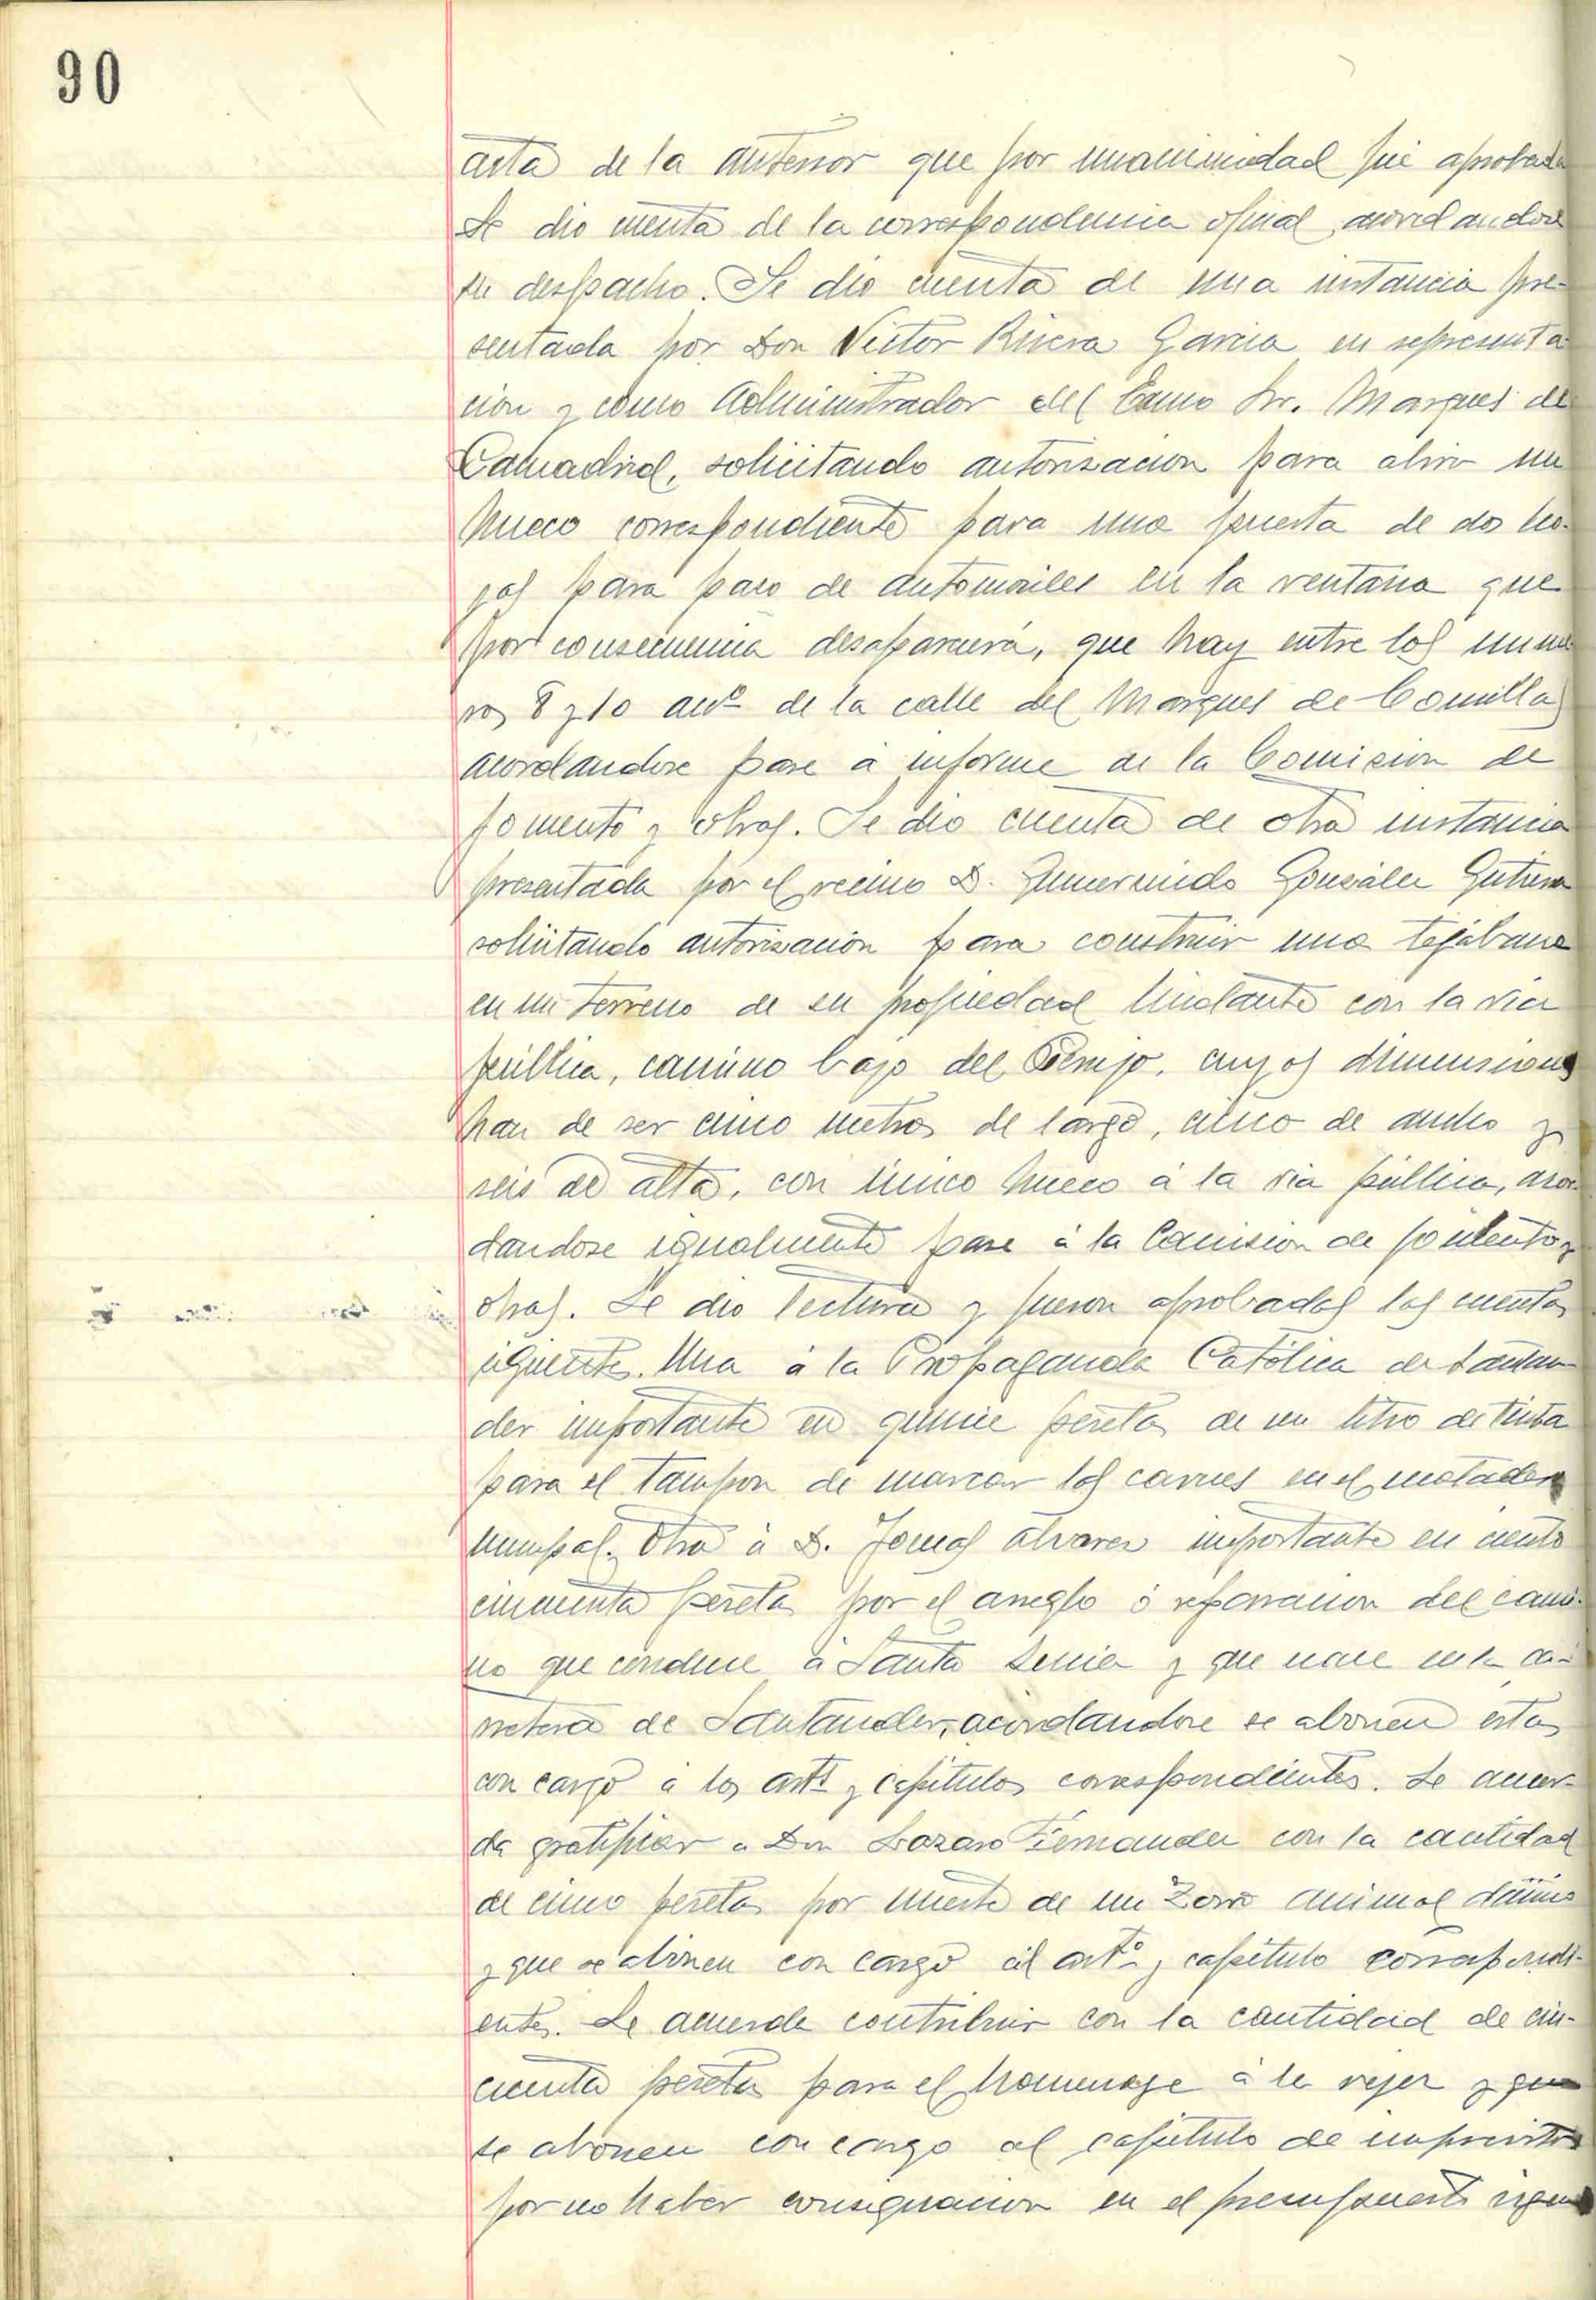 90
acta de la anterior que por unanimidad fué aprobada
Se dio cuenta de la correspondencia oficial acordandose
su despacho. Se dio cuenta de una instancia pre-
sentada por Don Victor Rivera Garcia en representa
cion y como Administrador del Excmo Sr. Marques de
Casa Madrid, solicitando autorizacion para abrir un
hueco correspondiente para una puerta de dos ho-
jas para paso de automoviles en la ventana que
por consecuencia desaparecerá, que hay entre los nume
ros 8 y 10 de la calle del Marques de Comillas
acordandose pase á informe de la Comision de
fomento y obras. Se dio cuenta de otra instancia
presentada por el vecino D. Gumersindo González Gutierrez
solicitando autorizacion para construir una tejabana
en un terreno de su propiedad lindante con la via
pública, camino bajo del cuyas dimensiones
han de ser cinco metros de largo, cinco de ancho y
seis de alta, con único hueco á la via pública, acor-
dandose igualmente pase á la Comision de fomento y
obras. Se dio lectura y fueron aprobadas las cuentas
siguientes. Una á la Propaganda Católica de Santan
der importante en quince pesetas de un litro de tinta
para el tampon de marcar las carnes en el matadero
municipal. Otra á D. Tomas Alvarez importante en ciento
cincuenta pesetas por el arreglo ó reparacion del cami-
no que conduce á Santa Lucia y que nace en la ca-
rretera de Santander, acordandose se abonen estas
con cargo á los arts y capitulos correspondientes. Se acuer-
da gratificar a Don Lazaro Fernandez con la cantidad
de cinco pesetas por muerte de un Zorro animal dañino
y que se abonen con cargo al artº y capítulo correspondi-
entes. Se acuerda contribuir con la cantidad de cin-
cuenta pesetas para el homenage á la vejez y que
se abonen con cargo al capitulo de imprevistos
por no haber consignacion en el presupuesto vigente